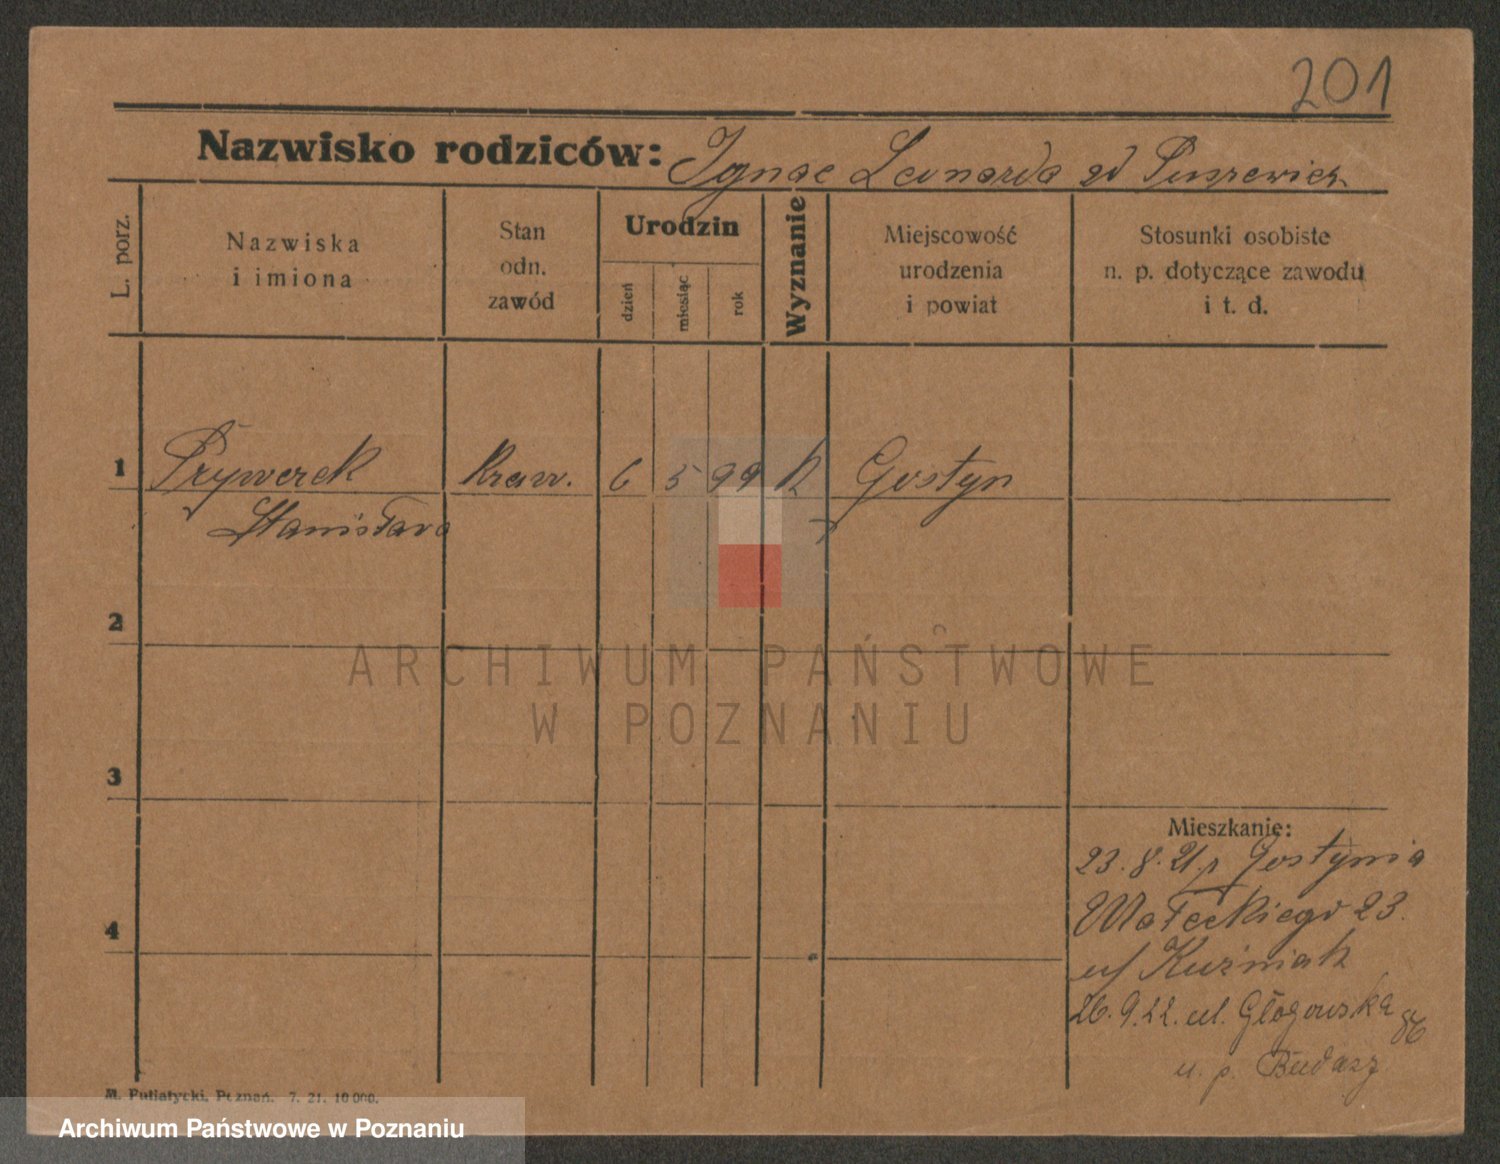 201
Nazwisko rodziców: Ignac Leonarda zd Puszewicz
L. porz.
Nazwiska i imiona
Stan odn. zawód
Urodzin
dzień
miesiąc
rok
Wyznanie
Miejscowość urodzenia i powiat
Stosunki osobiste n. p. dotyczące zawodu i t. d.
1 Przyworek Kraw. 6 5 99 K Gostyn
Stanisława
2
3
4
ARCHIWUM PAŃSTWOWE
W POZNANIU
Mieszkanie:
23. 8. 21. z Gostynia
Małeckiego 23.
u/ Kuźniak
26. 9. 22. ul. Głogowska 86
u. p. Budasz
M. Putiatycki, Poznań. 7. 21. 10 000.
Archiwum Państwowe w Poznaniu